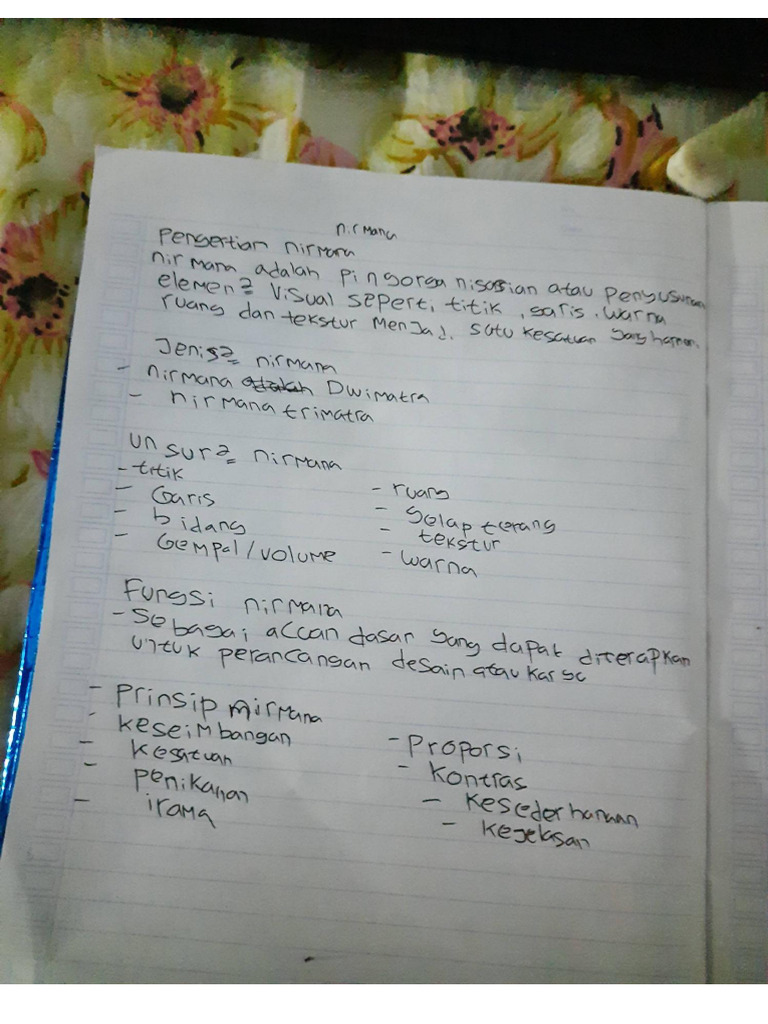 nirmana
Pengertian nirmana
nirmana adalah pingorga nisasian atau penyusunan
elemen2 visual seperti titik, garis, warna
ruang dan tekstur menjadi satu kesatuan yang harmon.
Jenis2 nirmana
- nirmana Dwimatra
- nirmana trimatra
Unsur2 nirmana
- titik
- Garis
- bidang
- Gempal/volume
- ruang
- gelap terang
- tekstur
- warna
Fungsi nirmana
- Sebagai accan dasar yang dapat diterapkan
untuk perancangan desain atau karya
- Prinsip nirmana
- keseimbangan
- kesatuan
- penikanan
- irama
- Proporsi
- kontras
- kesederhanaan
- kejelasan